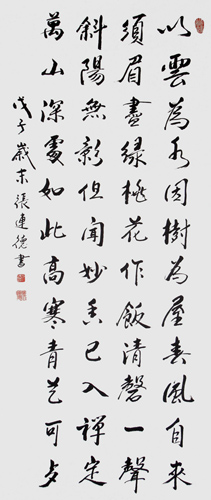 以雲為水因樹為屋春風自來
須眉盡綠桃花作飯清磬一聲
斜陽無影但聞妙香已入禪定
萬山深處如此高寒青芝可
戊子歲末張連德書